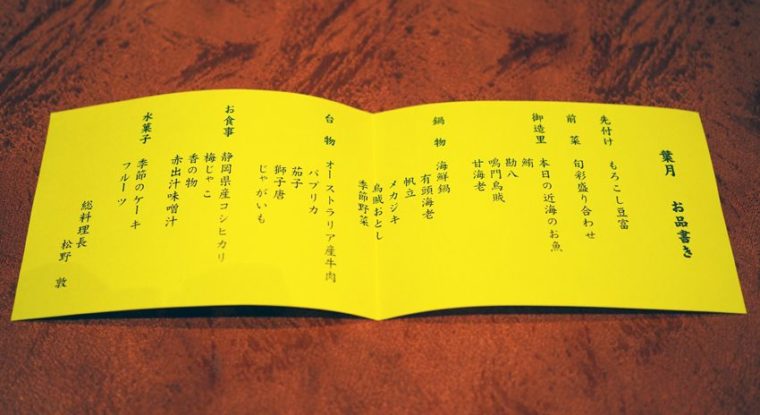 葉月 お品書き
先付け もろこし豆富
前菜 旬彩盛り合わせ
御造里 本日の近海のお魚
鮪
勘八
鳴門烏賊
甘海老
鍋物 海鮮鍋
有頭海老
帆立
メカジキ
烏賊おとし
季節野菜
台物 オーストラリア産牛肉
パプリカ
茄子
獅子唐
じゃがいも
お食事 静岡県産コシヒカリ
梅じゃこ
香の物
赤出汁味噌汁
水菓子 季節のケーキ
フルーツ
総料理長 松野 敦